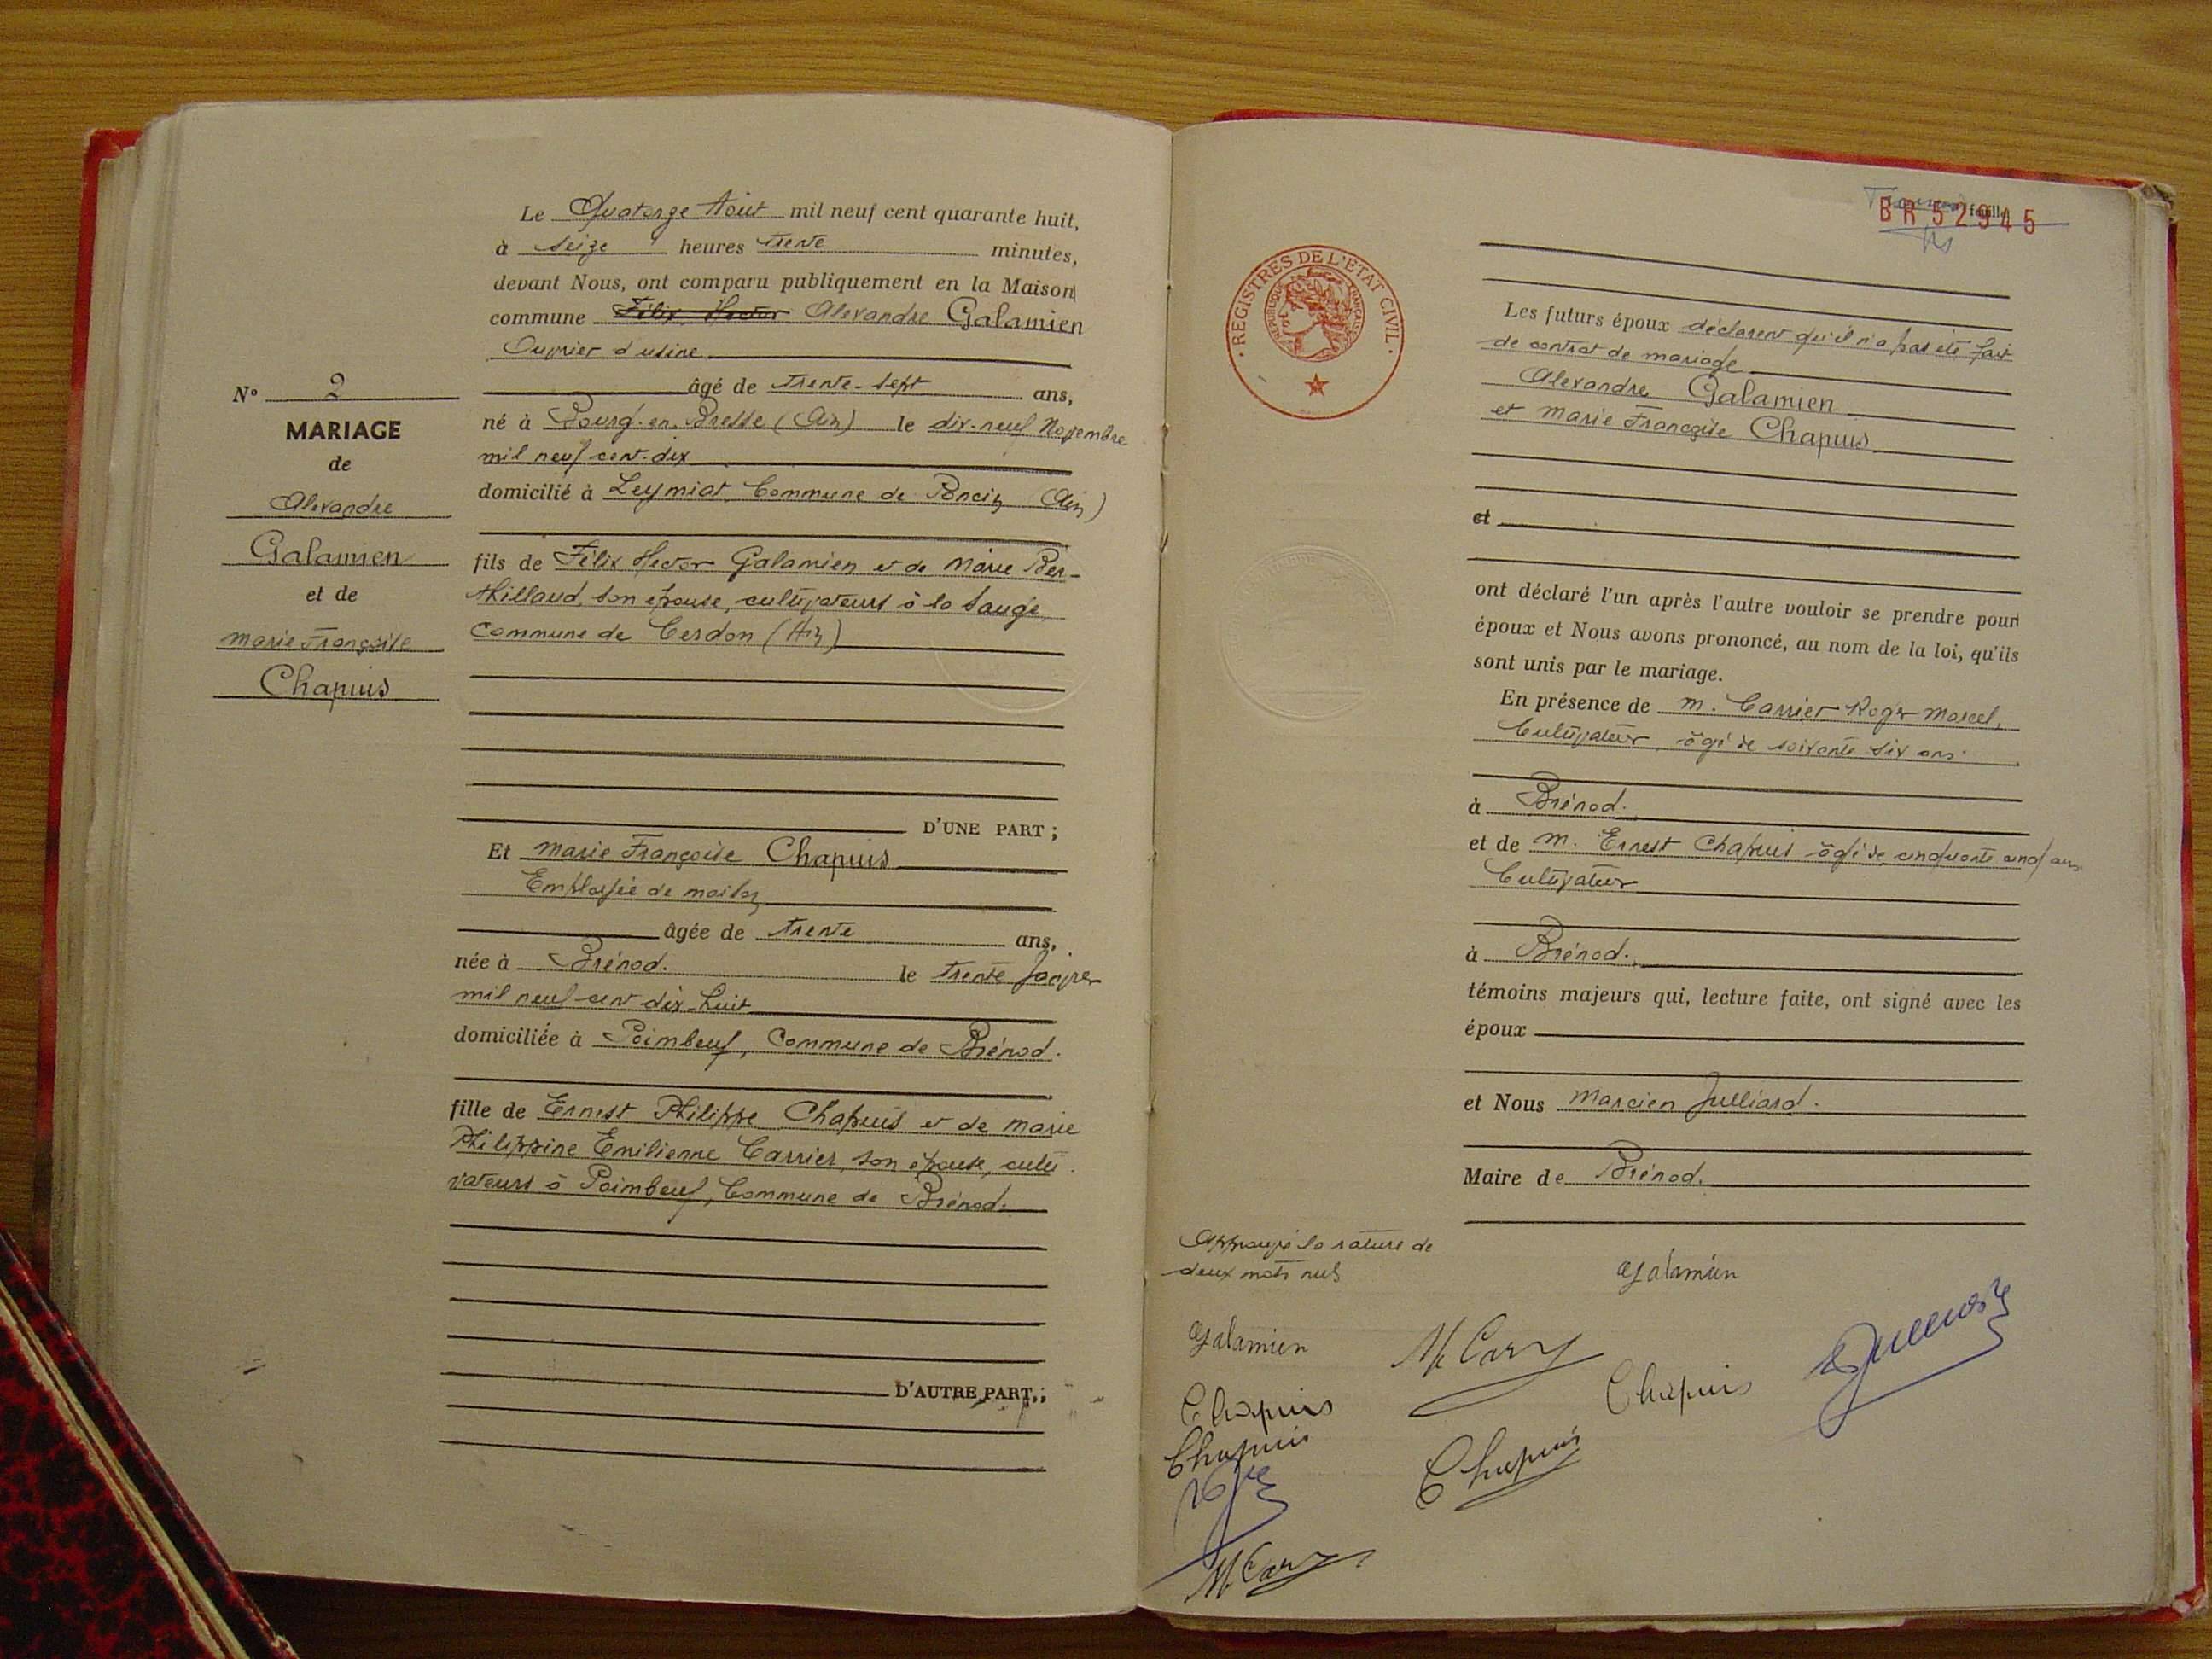 Le Quatorze Août mil neuf cent quarante huit,
à seize heures trente minutes,
devant Nous, ont comparu publiquement en la Maison
commune Félix Hector Alexandre Galamien
Ouvrier d'usine
âgé de trente-sept ans,
né à Bourg-en-Bresse (Ain) le dix-neuf Novembre
mil neuf cent-dix
domicilié à Leymiat, Commune de Poncin (Ain)
fils de Félix Hector Galamien et de Marie Ber-
thillaud, son épouse, cultivateurs à la Sauge,
Commune de Cerdon (Ain)
D'UNE PART ;
Et Marie Françoise Chapuis
Employée de maison
âgée de trente ans,
née à Brénod. le trente Janvier
mil neuf cent dix-huit
domiciliée à Poimbeuf, Commune de Brénod.
fille de Ernest Philippe Chapuis et de Marie
Philippine Emilienne Carrier, son épouse, culti-
vateurs à Poimbeuf, Commune de Brénod.
D'AUTRE PART ;
N° 2
MARIAGE
de
Alexandre
Galamien
et de
Marie Françoise
Chapuis
feuille
BR 52945
REGISTRES DE L'ETAT CIVIL
REPUBLIQUE FRANCAISE
Les futurs époux déclarent qu'il n'a pas été fait
de contrat de mariage
Alexandre Galamien
et Marie Françoise Chapuis
et
ont déclaré l'un après l'autre vouloir se prendre pour
époux et Nous avons prononcé, au nom de la loi, qu'ils
sont unis par le mariage.
En présence de M. Carrier Roger Marcel,
Cultivateur, âgé de soixante six ans
à Brénod.
et de M. Ernest Chapuis âgé de cinquante cinq ans
Cultivateur
à Brénod.
témoins majeurs qui, lecture faite, ont signé avec les
époux
et Nous Marcien Julliard.
Maire de Brénod.
Approuvé la rature de
deux mots nuls
Galamien
Galamien
Chapuis
Chapuis
Chapuis
Chapuis